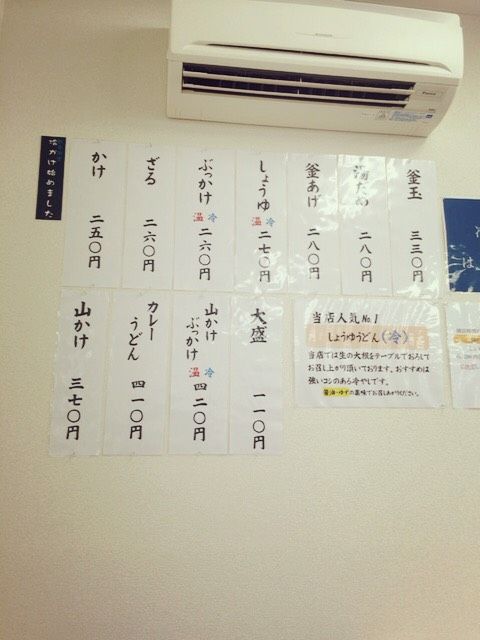 冷かけ始めました
釜玉 三三〇円
湯だめ 二八〇円
釜あげ 二八〇円
しょうゆ 温 冷 二七〇円
ぶっかけ 温 冷 二六〇円
ざる 二六〇円
かけ 二五〇円
大盛 一一〇円
山かけ
ぶっかけ 温 冷 四二〇円
カレー
うどん 四一〇円
山かけ 三七〇円
当店人気No.1
しょうゆうどん(冷)
当店では生の大根をテーブルでおろして
お召し上がり頂いております。おすすめは
強いコシのある冷やしです。
醤油・ゆずの薬味でお召しあがりください。
は